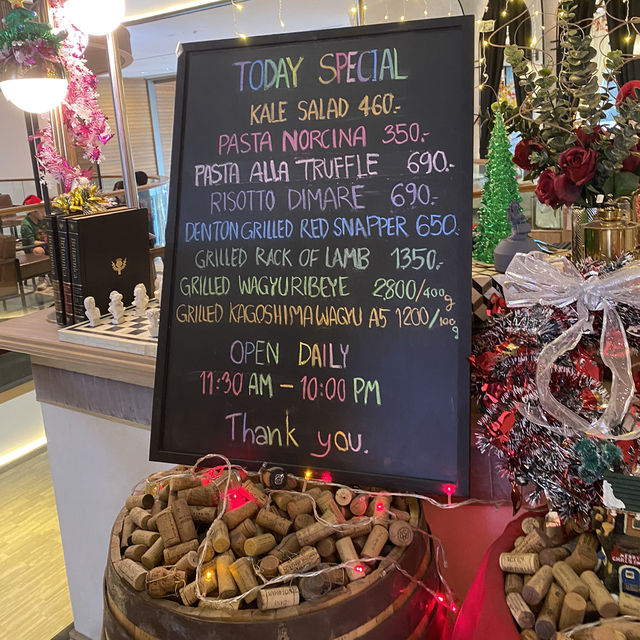 TODAY SPECIAL
KALE SALAD 460.-
PASTA NORCINA 350.-
PASTA ALLA TRUFFLE 690.-
RISOTTO DIMARE 690.-
DENTON GRILLED RED SNAPPER 650.
GRILLED RACK OF LAMB 1350.-
GRILLED WAGYU RIBEYE 2800/400g
GRILLED KAGOSHIMA WAGYU A5 1200/100g
OPEN DAILY
11:30 AM - 10:00 PM
Thank you.